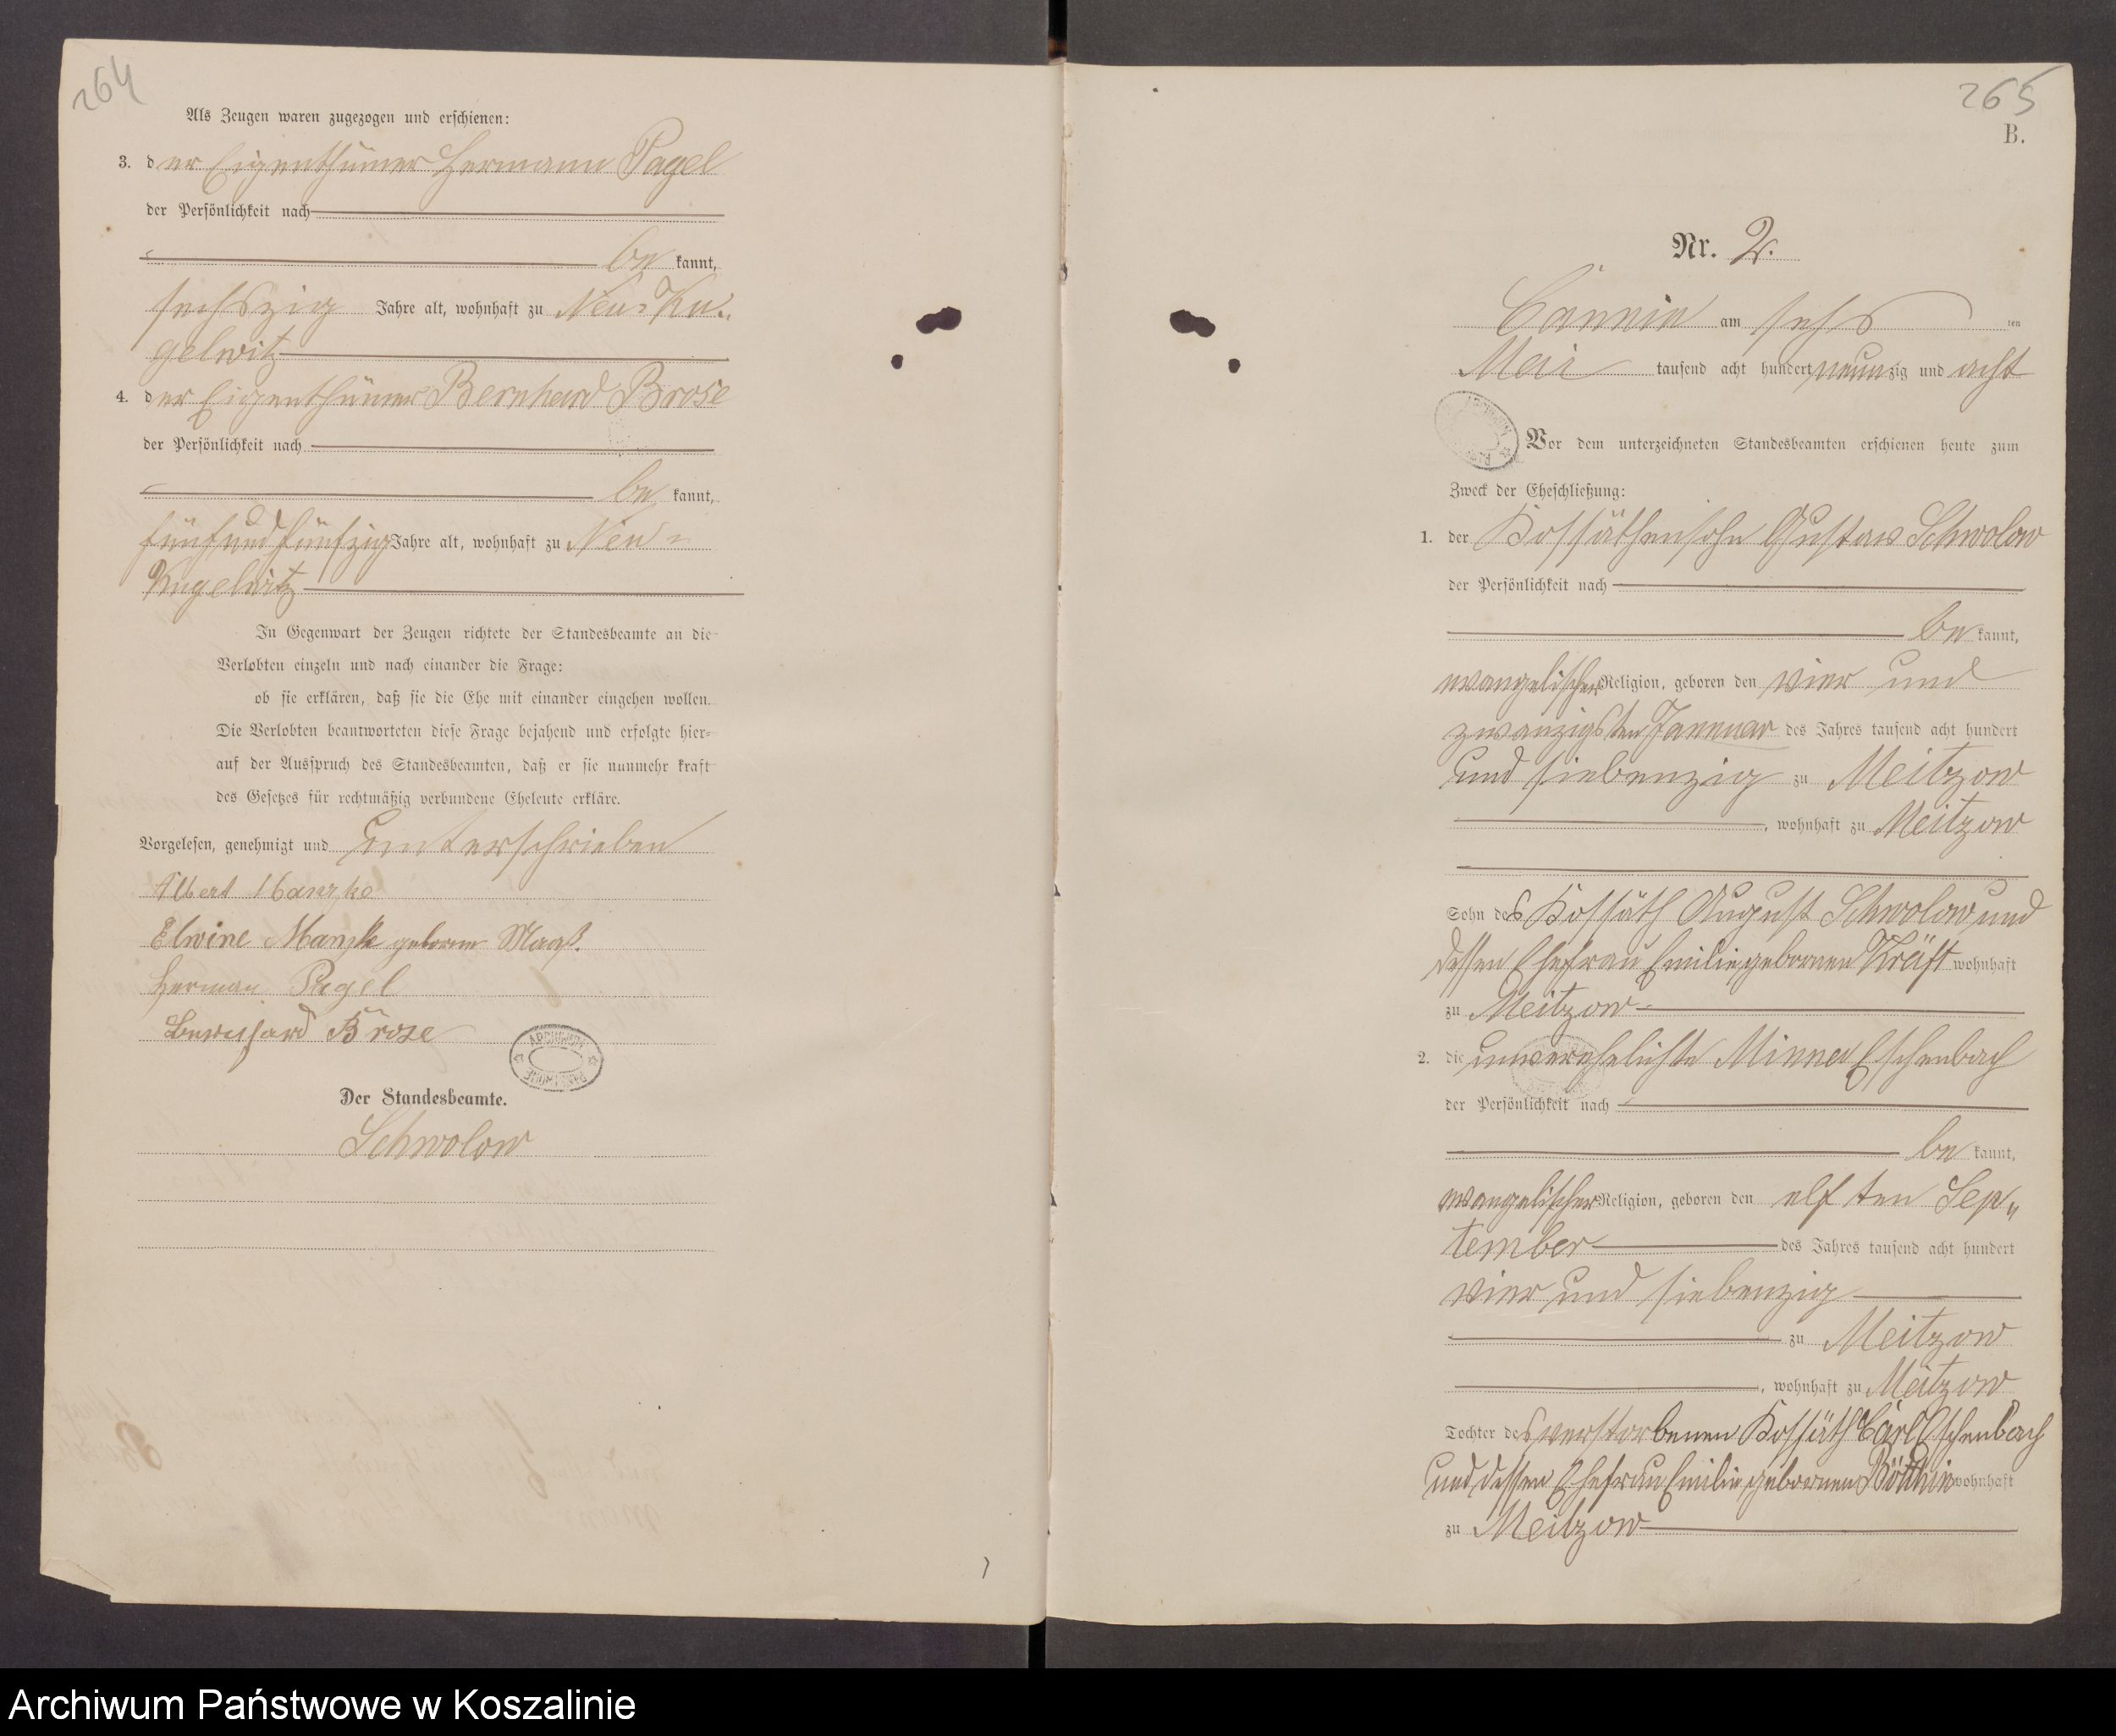 264
Als Zeugen waren zugezogen und erschienen:
3. der Eigenthümer Hermann Pagel
der Persönlichkeit nach
be kannt,
sechszig Jahre alt, wohnhaft zu Neu-Ku-
gelwitz
4. der Eigenthümer Bernhard Brose
der Persönlichkeit nach
be kannt,
fünfundfünfzig Jahre alt, wohnhaft zu Neu-
Kugelwitz
In Gegenwart der Zeugen richtete der Standesbeamte an die
Verlobten einzeln und nach einander die Frage:
ob sie erklären, daß sie die Ehe mit einander eingehen wollen.
Die Verlobten beantworteten diese Frage bejahend und erfolgte hier-
auf der Ausspruch des Standesbeamten, daß er sie nunmehr kraft
des Gesetzes für rechtmäßig verbundene Eheleute erkläre.
Vorgelesen, genehmigt und unterschrieben
Albert Manzke
Elwine Manzke geborene Maaß.
Herman Pagel
Bernhard Brose
Der Standesbeamte.
Schwolow
265
B.
Nr. 2.
Cannin am sechs ten
Mai tausend acht hundert neunzig und acht
Vor dem unterzeichneten Standesbeamten erschienen heute zum
Zweck der Eheschließung:
1. der Kossäthensohn Gustav Schwolow
der Persönlichkeit nach
be kannt,
evangelischer Religion, geboren den vier und
zwanzigsten Januar des Jahres tausend acht hundert
und siebenzig zu Meitzow
, wohnhaft zu Meitzow
Sohn des Kossäth August Schwolow und
dessen Ehefrau Emilie gebornen Kräft wohnhaft
zu Meitzow
2. die unverehelichte Minna Eschenbach
der Persönlichkeit nach
be kannt,
evangelischer Religion, geboren den elf ten Sep-
tember des Jahres tausend acht hundert
vier und siebenzig
zu Meitzow
, wohnhaft zu Meitzow
Tochter des verstorbenen Kossäth Carl Eschenbach
und dessen Ehefrau Emilie gebornen wohnhaft
zu Meitzow
Archiwum Państwowe w Koszalinie